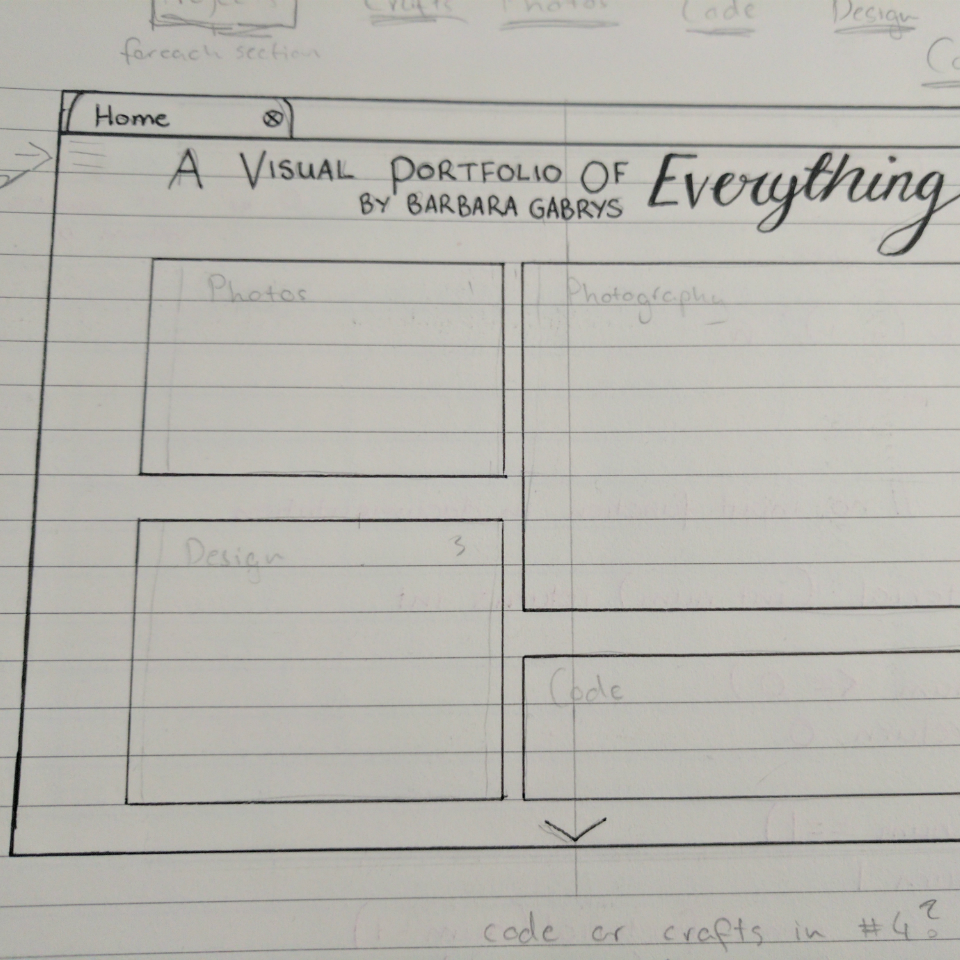 Projects Crafts Photos Code Design
foreach section
Home
A VISUAL PORTFOLIO OF Everything
BY BARBARA GABRYS
Photos 1
Photography
Design 3
Code
code or crafts in #4?